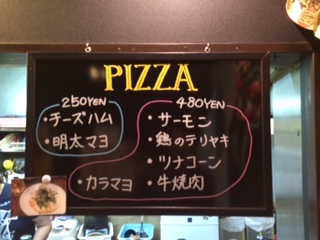 PIZZA
250YEN
・チーズハム
・明太マヨ
480YEN
・サーモン
・鶏のテリヤキ
・ツナコーン
・カラマヨ ・牛焼肉